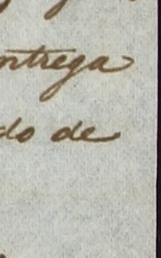 ntrega
do de